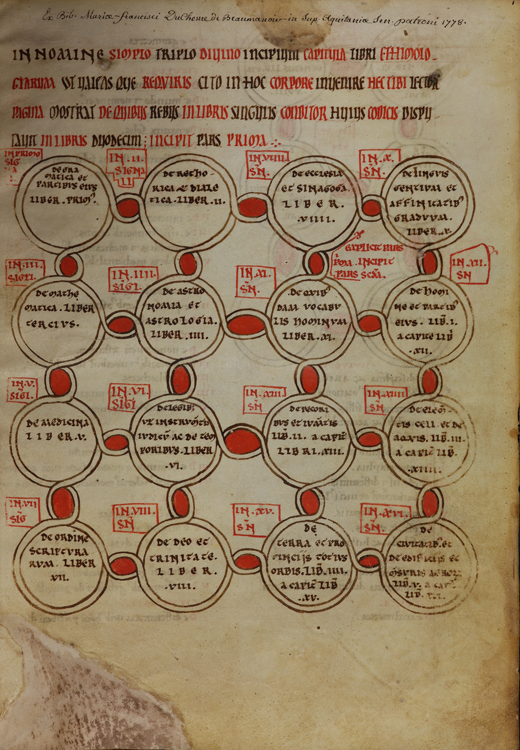 Ex Bib. Mariæ-francisci Duchesne de Beaumanoir in Sup. Aquitaniæ Sen. patroni 1778.
IN NOMINE TRIPLO DIVINO INCIPIUNT CAPITULA LIBRI ETHIMOLO
GIARUM UT VALEAS QUE REQUIRIS CITO IN HOC CORPORE INVENIRE HEC TIBI LECTOR
PAGINA MOSTRAT DE QUIBUS REBUS IN LIBRIS SINGULIS CONDITOR HUIUS CODICIS DISPU
TAVIT IN LIBRIS DUODECIM : INCIPIT PARS PRIMA
IN PRIMO
SIG
IN. II.
SIGNA
IN. VIIII.
SN
IN. X.
SN
DE GRA
MATICA ET
PARTIBUS EIUS
LIBER. PRIM9.
DE RETHO
RICA & DIALE
TICA. LIBER. II.
DE ECCLESIA
ET SINAGOGA
LIBER.
VIIII.
DE LINGUIS
GENTIUM ET
AFFINITATIB9
GRADUUM.
LIBER. X.
EXPLICIT HUIUS
INCIPIT
PARS SCDA.
IN. III.
SIGL.
IN. IIII.
SIGL.
IN. XI.
SN.
IN. XII.
SN
DE MATHE
MATICA. LIBER
TERCIUS.
DE ASTRO
NOMIA ET
ASTROLOGIA.
LIBER. IIII.
DE QUIB9
DAM VOCABU
LIS HOMINUM
LIBER. XI.
DE HOMI
NE ET PARTIB9
EIUS. LIB. I.
A CAPITE LIB
.XII.
IN. V.
SIGL.
IN. VI
SIGL
IN. XIII
SN
IN. XIIII
SN
DE MEDICINA
LIBER. V.
DE LEGIB9
UT INSTRUMTIS
IUDICUM AC DE TEM
PORIBUS. LIBER
.VI.
DE PECORI
BUS ET IUMTIS
LIB. II. A CAPITE
LIBRI. XIII.
DE ELEM
TIS CELI ET DE
AQUIS. LIB. III.
A CAPITE LIB
.XIIII.
IN. VII
SIG
IN. VIII.
SN.
IN. XV.
SN
IN. XVI.
SN.
DE ORDINE
SCRIPTURA
RUM. LIBER
VII.
DE DEO ET
TRINITATE.
LIBER.
VIII.
DE
TERRA ET PRO
VINCIIS TOTIUS
ORBIS. LIB. IIII.
A CAPITE LIB
.XV.
DE
CIVITATIB9 ET
DE EDIFICIIS ET
LIB. V. A CAPITE